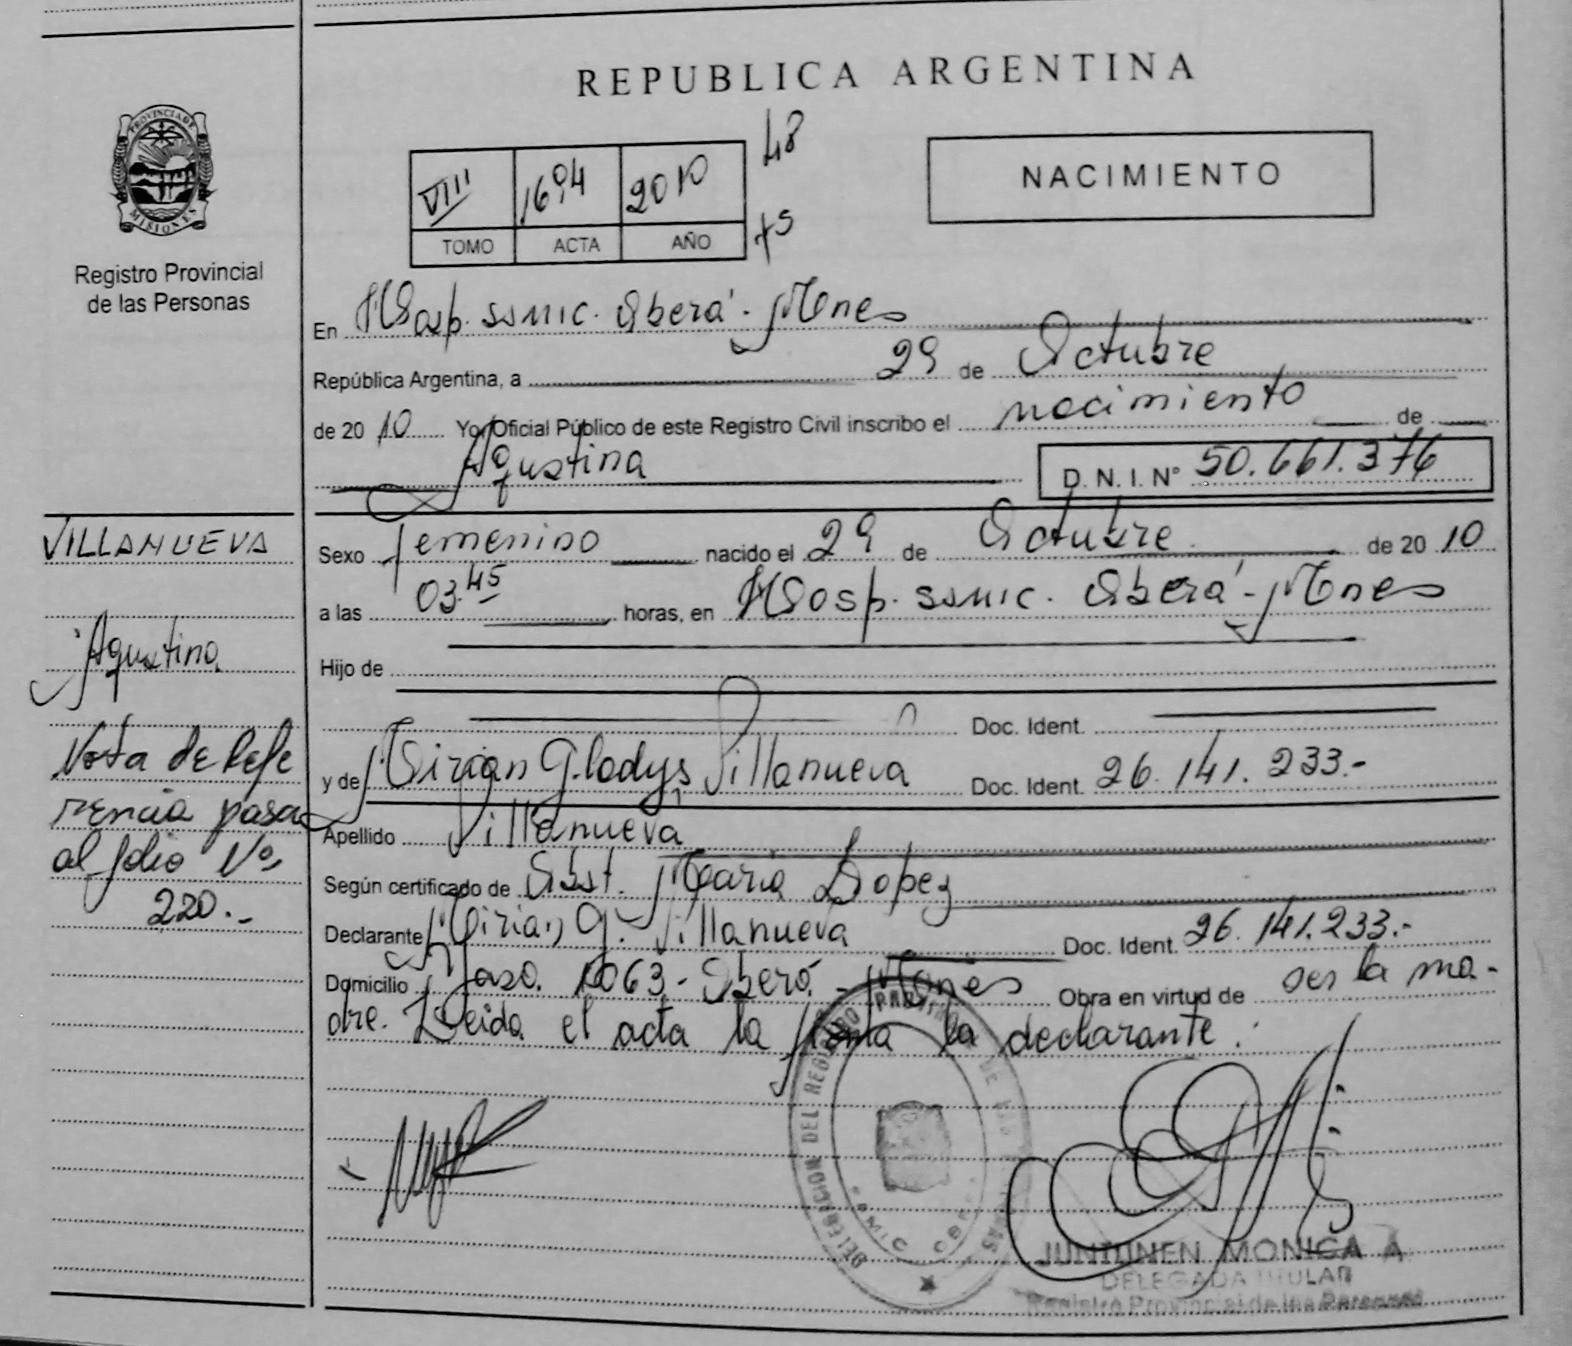 REPUBLICA ARGENTINA
PROVINCIA DE MISIONES
Registro Provincial
de las Personas
VIII 1694 2010
TOMO ACTA AÑO
48
75
NACIMIENTO
En Hosp. SAMIC. Oberá - Mnes
República Argentina, a 29 de Octubre
de 2010 Yo, Oficial Público de este Registro Civil inscribo el nacimiento de
Agustina D. N. I. Nº 50.661.376
VILLANUEVA
Agustina
Nota de Refe
rencia pasa
al folio Nº
220.-
Sexo femenino nacido el 29 de Octubre de 2010
a las 03.45 horas, en Hosp. SAMIC. Oberá - Mnes
Hijo de
Doc. Ident.
y de Mirian Gladys Villanueva Doc. Ident. 26.141.233.-
Apellido Villanueva
Según certificado de Obst. Maria Lopez
Declarante Mirian G. Villanueva Doc. Ident. 26.141.233.-
Domicilio 1063 - Oberá - Mnes Obra en virtud de ser la ma-
dre. Leida el acta la firma la declarante.
DELEGACION DEL REGISTRO
SAMIC OBERA
JUNTUNEN MONICA A
DELEGADA TITULAR
Registro Provincial de las Personas